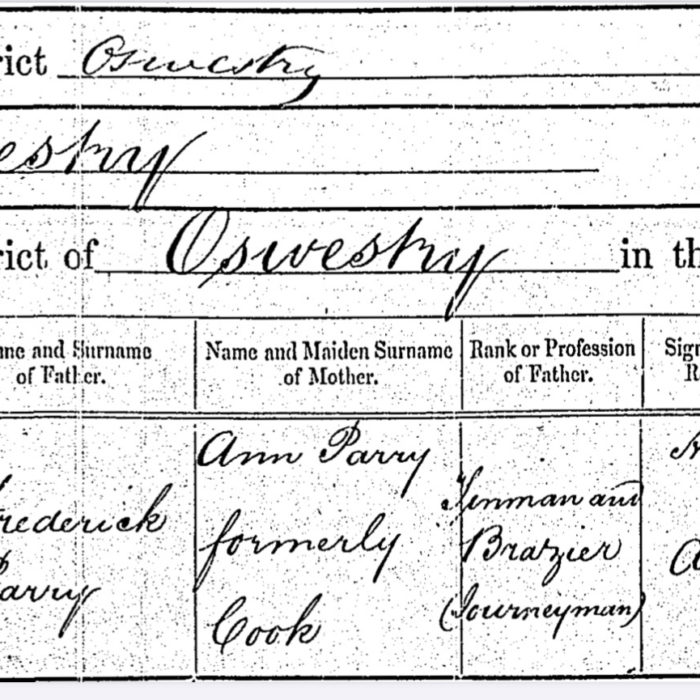 rict Oswestry
estry
rict of Oswestry in th
me and Surname of Father.
Name and Maiden Surname of Mother.
Rank or Profession of Father.
Sig
R
Frederick
Parry
Ann Parry
formerly
Cook
Tinman and
Brazier
(Journeyman)